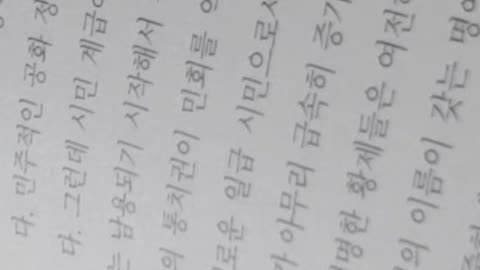 다. 민주적인 공화 정
다. 그런데 시민 계급이
는 남용되기 시작해서
의 통치권이 민회를
로운 일급 시민으로서
가 아무리 급속히 증가
명한 황제들은 여전히
의 이름이 갖는 명예